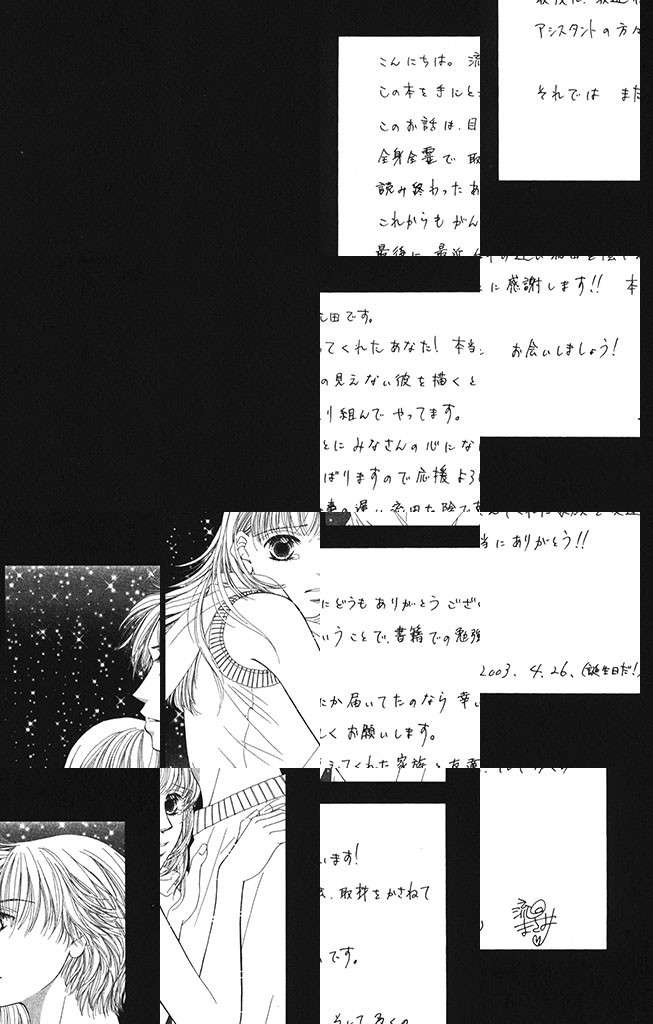 こんにちは。 流
この本を手にと
このお話は、目
全身全霊で 取
読み終わったあ
これからも がん
最後に 最近
アシスタントの方々
それでは また
田です。
ってくれたあなた! 本当
の見えない彼を描くと
り組んで やってます。
とに みなさんの心にな
ばりますので応援 よろ
に 感謝します!! 本
お会いしましょう!
にどうも ありがとう ござい
いうことで、書籍での勉強
にか届いてたのなら 幸い
しく お願いします。
えてくれた家族と友達
当に ありがとう!!
2003. 4.26、(誕生日だ!)
います!
、取材をかさねて
です。
そして多くの